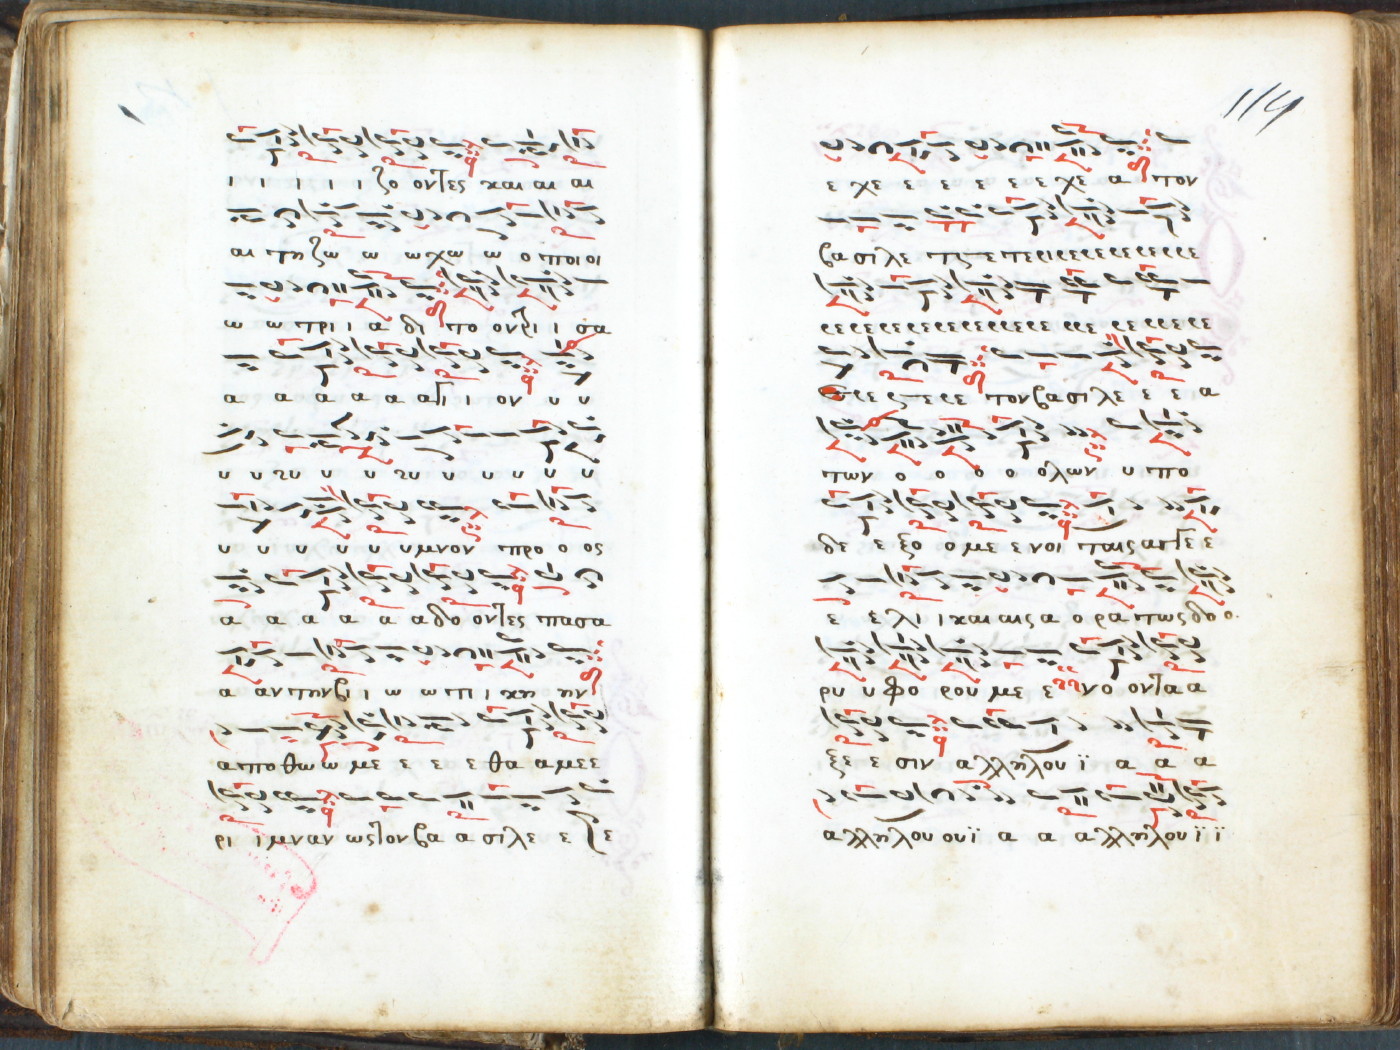 ι ι ι ι ι ζο οντες και αι αι
αι τη ζω ω ω χω ω ο ποι οι
ω ω τρι ι α δι το ον ρι ι σα
α α α α α α γι ι ον υ υ
υ υ χυ υ υ χυ υ υ υ υ υ
υ υ υ υ υ υ υμνον προ ο ος
α α α α α α δο οντες πασα
α αν την βι ι ω ω τι ι κη ην
αποθωω με ε ε ε θα α μεε
ρι ιμναν ως τον βα α σιλε ε ε
114
ε χε ε ε ε ε ε ε χε α τον
βασιλε τε ε τεριρερερερερερε
ρερερερερερερερερερε ρρε ρερερερε
ε ρε τερερε τον βασιλε ε ε α
των ο ο ο ο ολων υ πο
δε ε ξο ο με ε νοι ταις αγγε ε
ε ε λι ι καις α ορατωςδο ο
ρυ υ φο ρου με ε νο ον τα α
ξε ε σιν αλληλου ϊ α α α
αλληλου ουϊ α α αλληλου ϊ ϊ